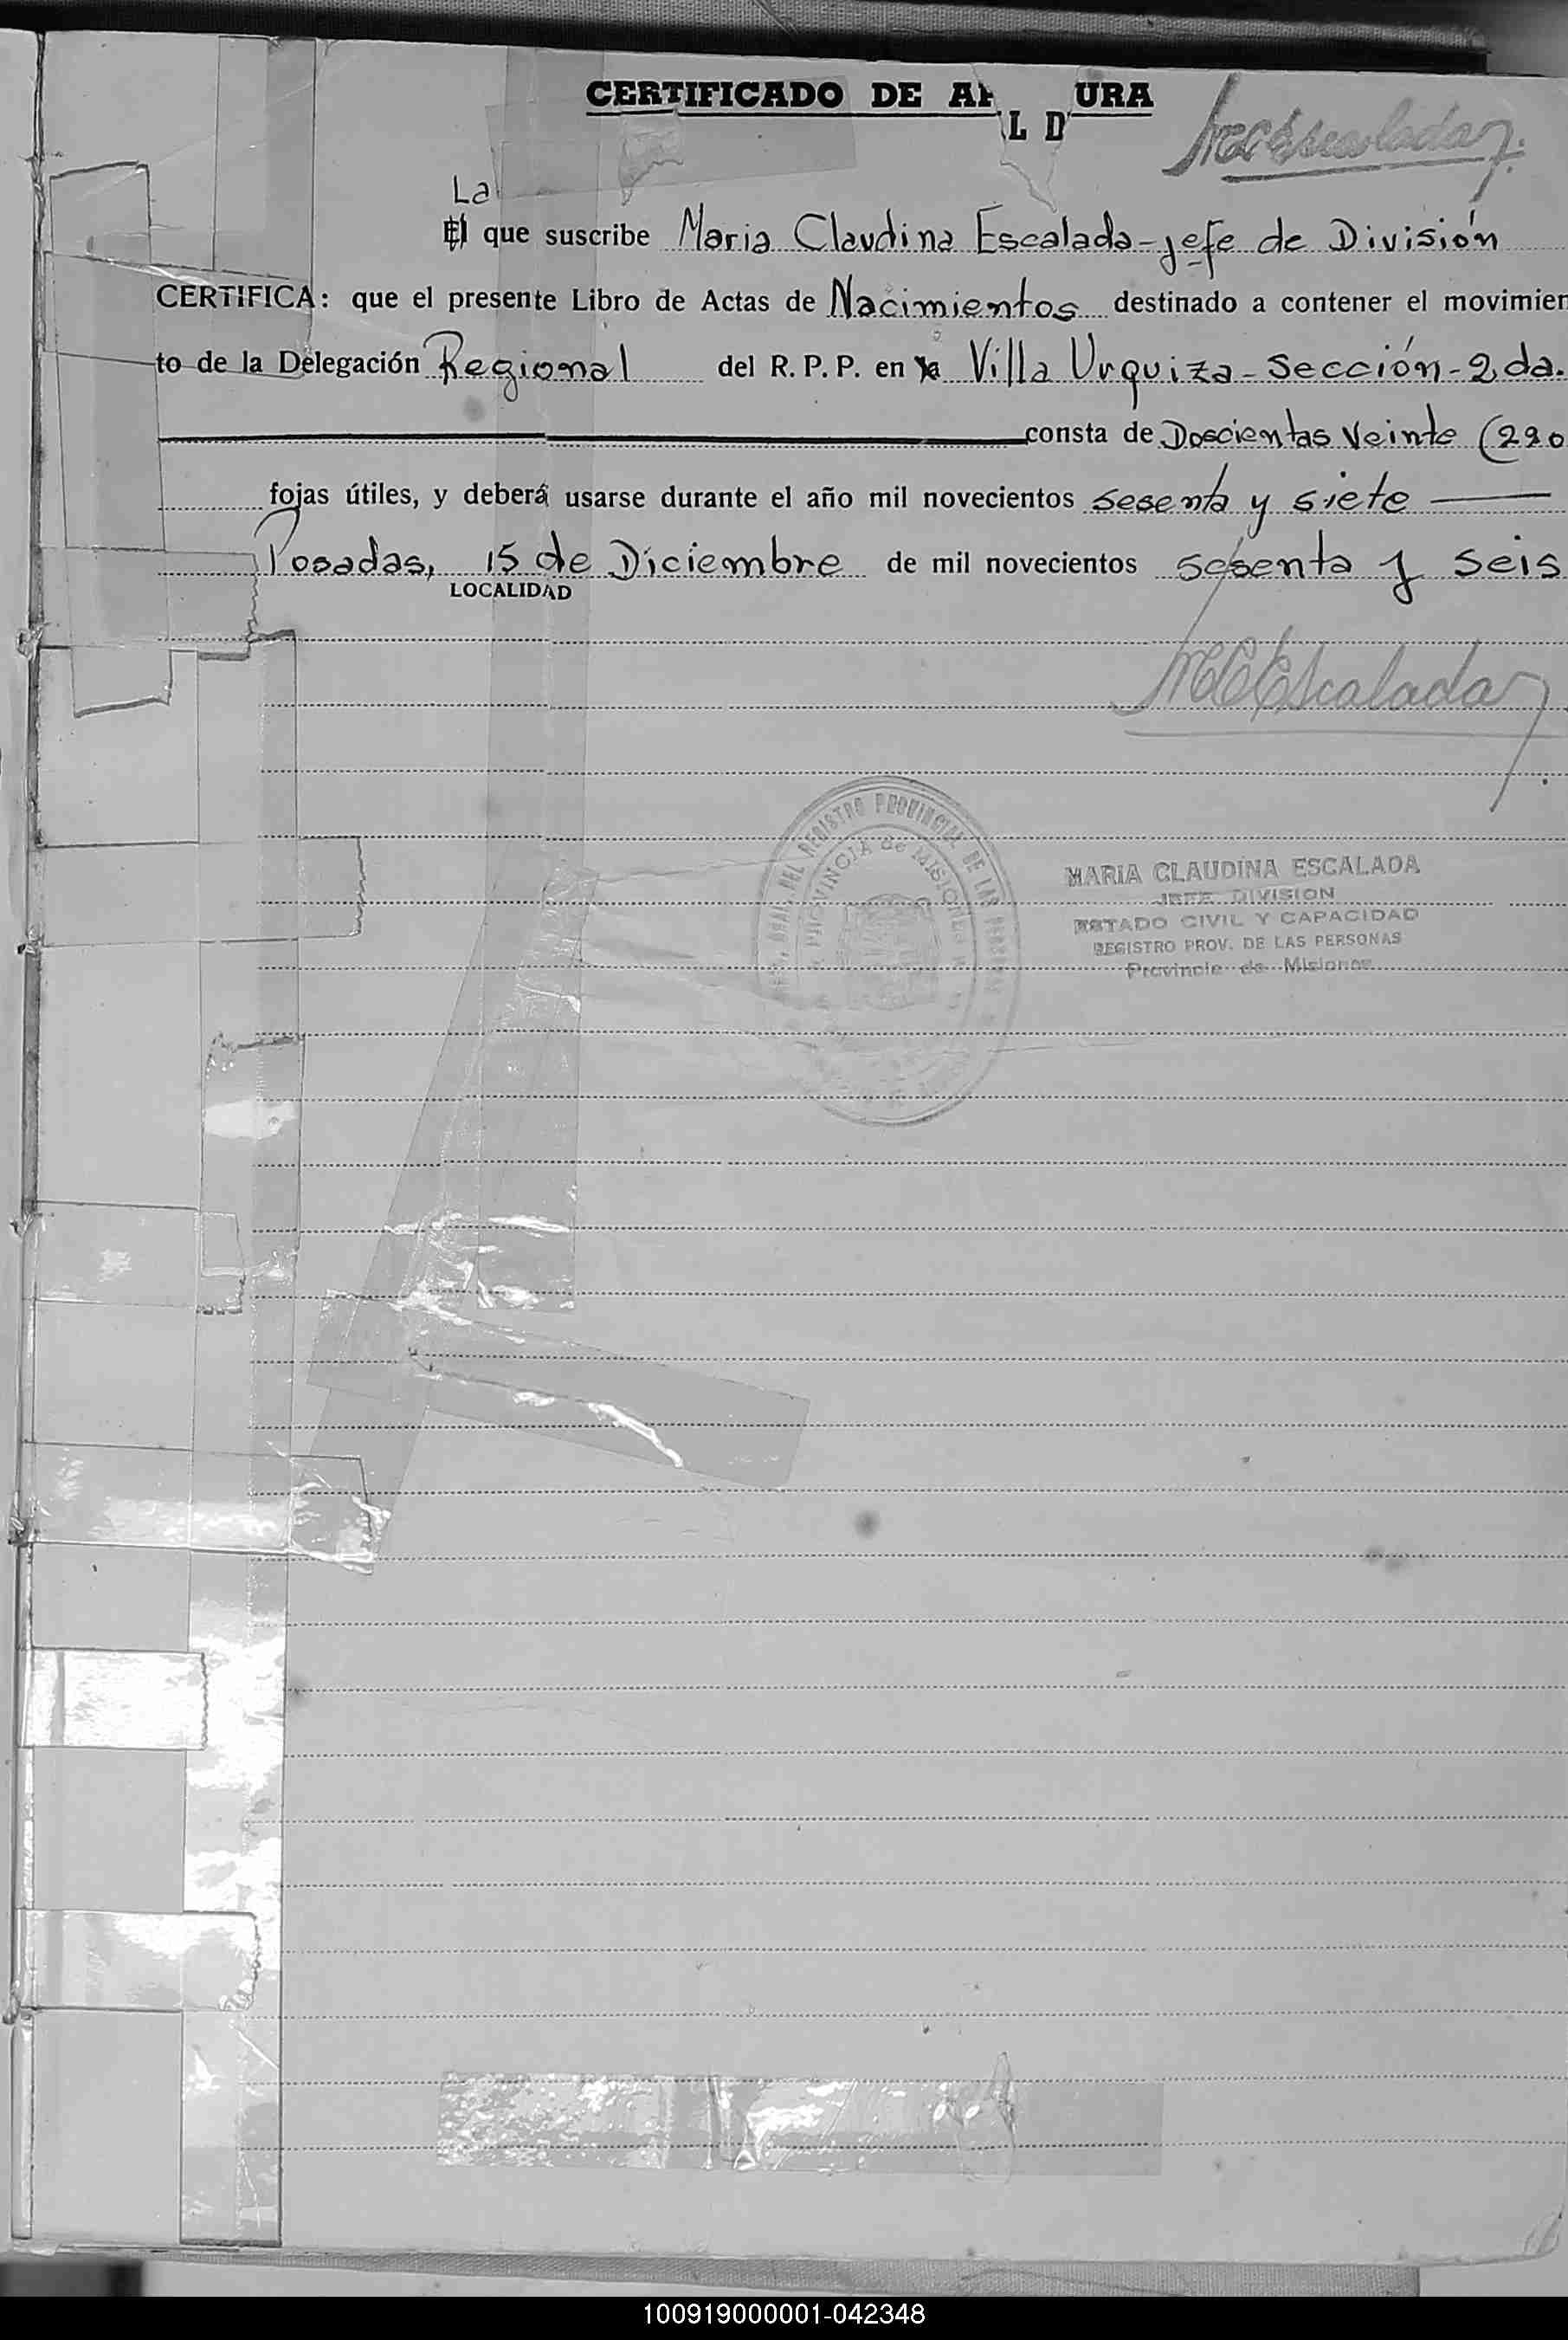 CERTIFICADO DE AP URA
L D
MCEscalada
La
El que suscribe Maria Claudina Escalada - jefe de División
CERTIFICA: que el presente Libro de Actas de Nacimientos destinado a contener el movimien
to de la Delegación Regional del R. P. P. en la Villa Urquiza - Sección - 2da.
consta de Doscientas Veinte (220
fojas útiles, y deberá usarse durante el año mil novecientos sesenta y siete
Posadas, 15 de Diciembre de mil novecientos sesenta y seis
LOCALIDAD
MCEscalada
DEL REGISTRO PROVINCIAL DE LAS
PROVINCIA de MISIONES
MARIA CLAUDINA ESCALADA
JEFE DIVISION
ESTADO CIVIL Y CAPACIDAD
REGISTRO PROV. DE LAS PERSONAS
Provincia de Misiones
100919000001-042348